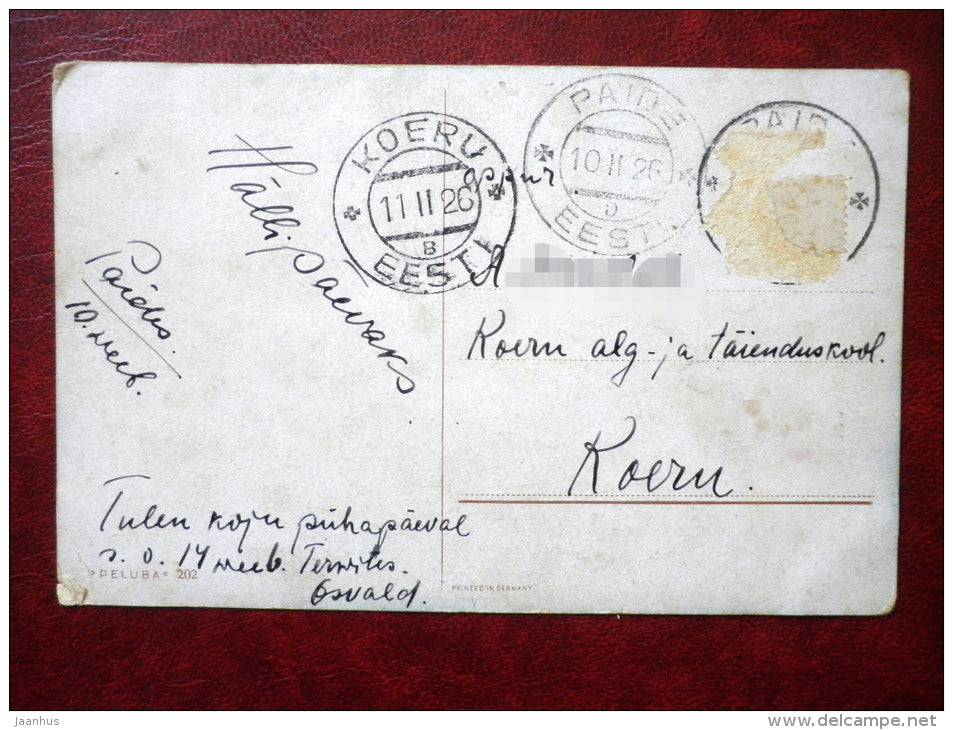 KOERU
11 II 26
B
EESTI
PAIDE
10 II 26
EESTI
PAID
Hälli päevaks
Paides.
10. weeb.
A
Koeru alg- ja täienduskool.
Koeru.
Tulen koju pühapäeval
s. o. 14 weeb. Terwites.
Osvald.
PELUBA 202
PRINTED IN GERMANY
Jaanhus
www.delcampe.net